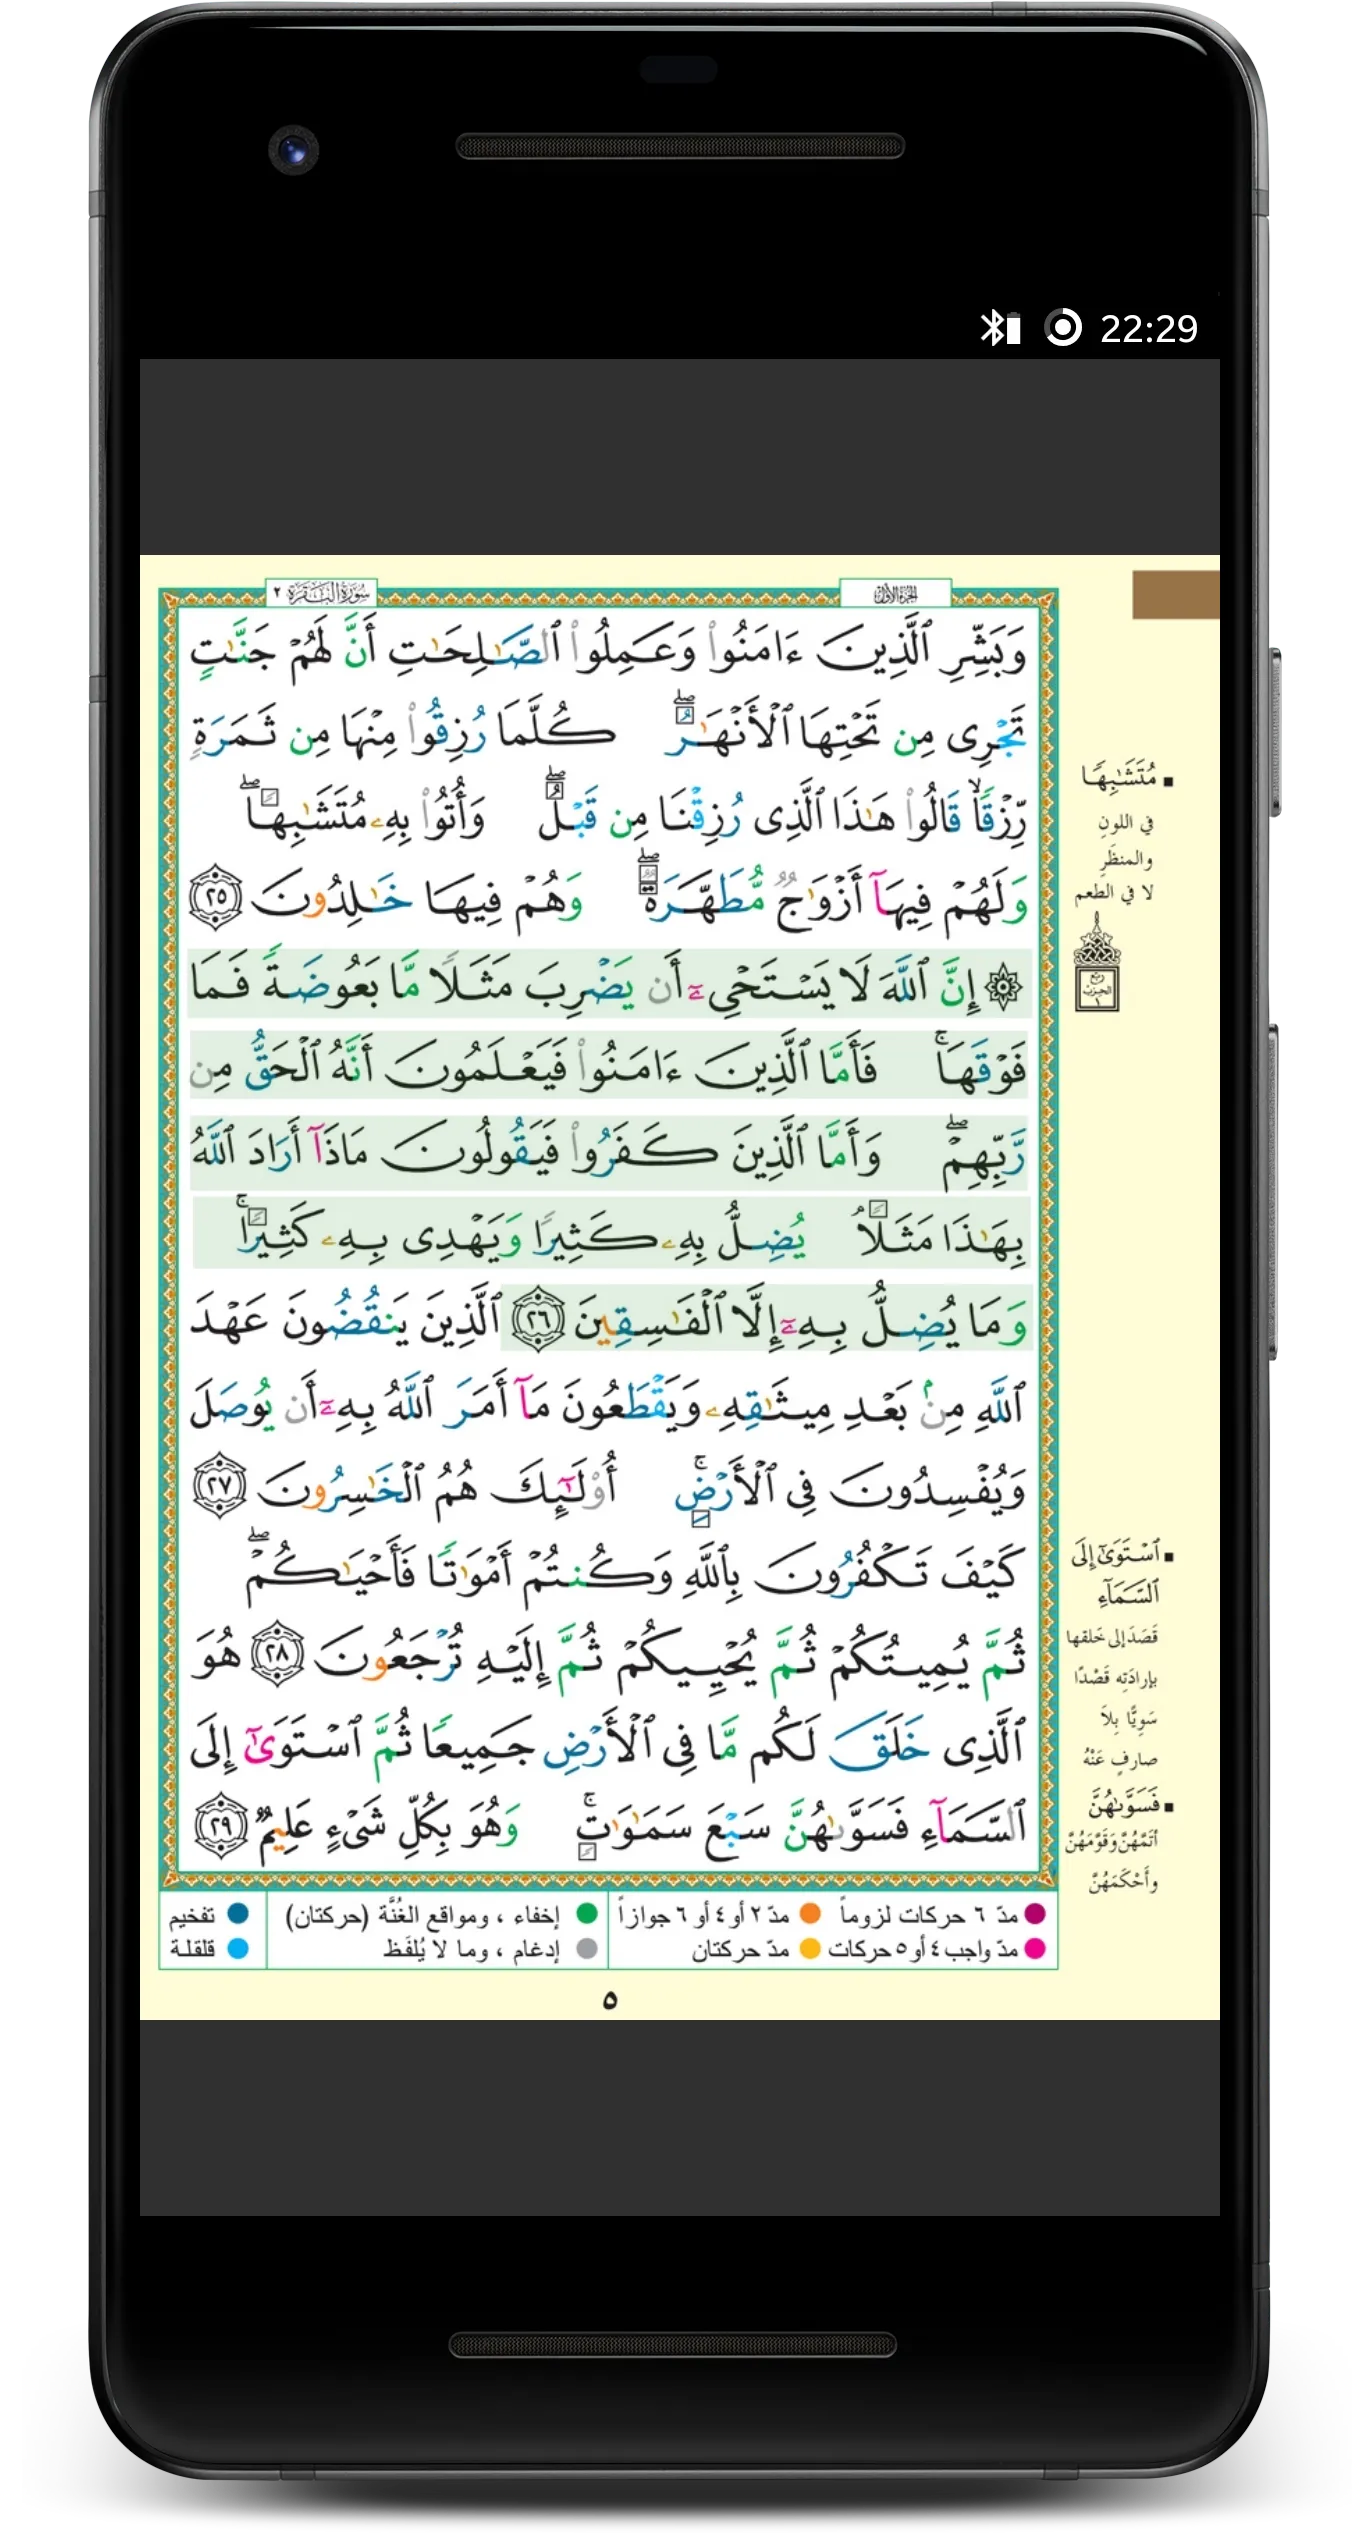 22:29
الجزء الأول
سُورَةُ البَقَرَةِ ٢
وَبَشِّرِ ٱلَّذِينَ ءَامَنُوا۟ وَعَمِلُوا۟ ٱلصَّـٰلِحَـٰتِ أَنَّ لَهُمْ جَنَّـٰتٍ
تَجْرِى مِن تَحْتِهَا ٱلْأَنْهَـٰرُ ۖ كُلَّمَا رُزِقُوا۟ مِنْهَا مِن ثَمَرَةٍ
رِّزْقًا ۙ قَالُوا۟ هَـٰذَا ٱلَّذِى رُزِقْنَا مِن قَبْلُ ۖ وَأُتُوا۟ بِهِۦ مُتَشَـٰبِهًا ۖ
وَلَهُمْ فِيهَآ أَزْوَٰجٌ مُّطَهَّرَةٌ ۖ وَهُمْ فِيهَا خَـٰلِدُونَ ٢٥
۞ إِنَّ ٱللَّهَ لَا يَسْتَحْىِۦٓ أَن يَضْرِبَ مَثَلًا مَّا بَعُوضَةً فَمَا
فَوْقَهَا ۚ فَأَمَّا ٱلَّذِينَ ءَامَنُوا۟ فَيَعْلَمُونَ أَنَّهُ ٱلْحَقُّ مِن
رَّبِّهِمْ ۖ وَأَمَّا ٱلَّذِينَ كَفَرُوا۟ فَيَقُولُونَ مَاذَآ أَرَادَ ٱللَّهُ
بِهَـٰذَا مَثَلًا ۘ يُضِلُّ بِهِۦ كَثِيرًا وَيَهْدِى بِهِۦ كَثِيرًا ۚ
وَمَا يُضِلُّ بِهِۦٓ إِلَّا ٱلْفَـٰسِقِينَ ٢٦ ٱلَّذِينَ يَنقُضُونَ عَهْدَ
ٱللَّهِ مِنۢ بَعْدِ مِيثَـٰقِهِۦ وَيَقْطَعُونَ مَآ أَمَرَ ٱللَّهُ بِهِۦٓ أَن يُوصَلَ
وَيُفْسِدُونَ فِى ٱلْأَرْضِ ۚ أُو۟لَـٰٓئِكَ هُمُ ٱلْخَـٰسِرُونَ ٢٧
كَيْفَ تَكْفُرُونَ بِٱللَّهِ وَكُنتُمْ أَمْوَٰتًا فَأَحْيَـٰكُمْ ۖ
ثُمَّ يُمِيتُكُمْ ثُمَّ يُحْيِيكُمْ ثُمَّ إِلَيْهِ تُرْجَعُونَ ٢٨ هُوَ
ٱلَّذِى خَلَقَ لَكُم مَّا فِى ٱلْأَرْضِ جَمِيعًا ثُمَّ ٱسْتَوَىٰٓ إِلَى
ٱلسَّمَآءِ فَسَوَّىٰهُنَّ سَبْعَ سَمَـٰوَٰتٍ ۚ وَهُوَ بِكُلِّ شَىْءٍ عَلِيمٌ ٢٩
▪ مُتَشَـٰبِهًا
في اللونِ
والمنظَرِ
لا في الطعم
ربع
الحزب
١
▪ ٱسْتَوَىٰٓ إِلَى
ٱلسَّمَآءِ
قَصَدَ إلى خَلقها
بإرادَتِه قَصْدًا
سَوِيًّا بِلاَ
صارِفٍ عَنْهُ
▪ فَسَوَّىٰهُنَّ
أتَمَّهُنَّ وَقَوَّمَهُنَّ
وأَحْكَمَهُنَّ
مدّ ٦ حركات لزوماً
مدّ ٢ أو ٤ أو ٦ جوازاً
إخفاء ، ومواقع الغُنَّة (حركتان)
تفخيم
مدّ واجب ٤ أو ٥ حركات
مدّ حركتان
إدغام ، وما لا يُلفَظ
قلقلة
٥